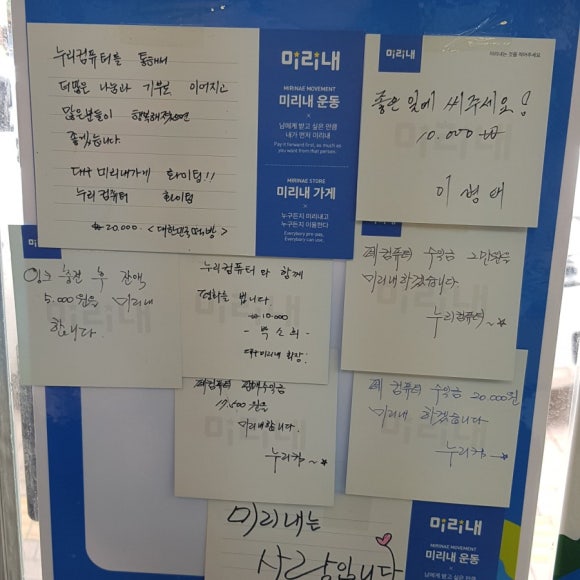 누리컴퓨터를 통해서
더많은 나눔과 기부로 이어지고
많은분들이 행복해졌으면
좋겠습니다.
대구 미리내가게 화이팅!!
누리컴퓨터 화이팅
₩20,000 <대한민국 떼방>
미리내
MIRINAE MOVEMENT
미리내 운동
×
남에게 받고 싶은 만큼
내가 먼저 미리내
Pay it forward first, as much as
you want from that person.
MIRINAE STORE
미리내 가게
×
누구든지 미리내고
누구든지 이용한다
Everybody pre-pay,
Everybody can use.
미리내
미리내는 것을 적어주세요
좋은 일에 써주세요!
10,000
이병태
미리내
잉크 충전 후 잔액
5,000원을 미리내
합니다.
누리컴퓨터와 함께
영화를 봅니다.
₩10,000
- 박소희 -
대구미리내 회장!
폐컴퓨터 수익금 2만원을
미리내하겠습니다
누리컴퓨터~
폐컴퓨터 판매수익금
17,500원을
미리내합니다.
누리컴~
폐 컴퓨터 수익금 20,000원
미리내 하겠습니다
누리컴~
미리내는
사랑입니다
미리내
MIRINAE MOVEMENT
미리내 운동
×
남에게 받고 싶은 만큼